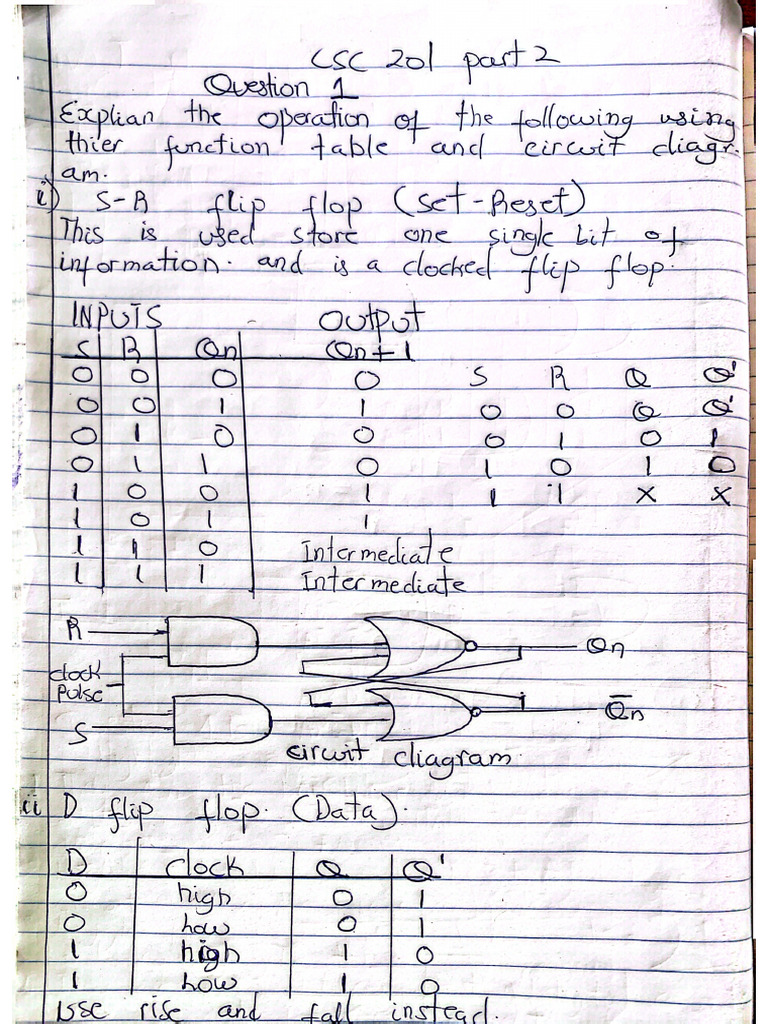 CSC 201 part 2
Question 1
Explian the operation of the following using
thier function table and circuit diagr-
am.
i) S-R flip flop (Set-Reset)
This is used store one single bit of
information. and is a clocked flip flop.
INPUTS OUTPUT
S R Qn Qn+1
0 0 0 0 S R Q Q'
0 0 1 1 0 0 Q Q'
0 1 0 0 0 1 0 1
0 1 1 0 1 0 1 0
1 0 0 1 1 1 x x
1 0 1 1
1 1 0 Intermediate
1 1 1 Intermediate
R
Qn
clock
pulse
Q̄n
S
circuit diagram.
ii D flip flop. (Data).
D clock Q Q'
0 high 0 1
0 how 0 1
1 high 1 0
1 how 1 0
Use rise and fall instead.